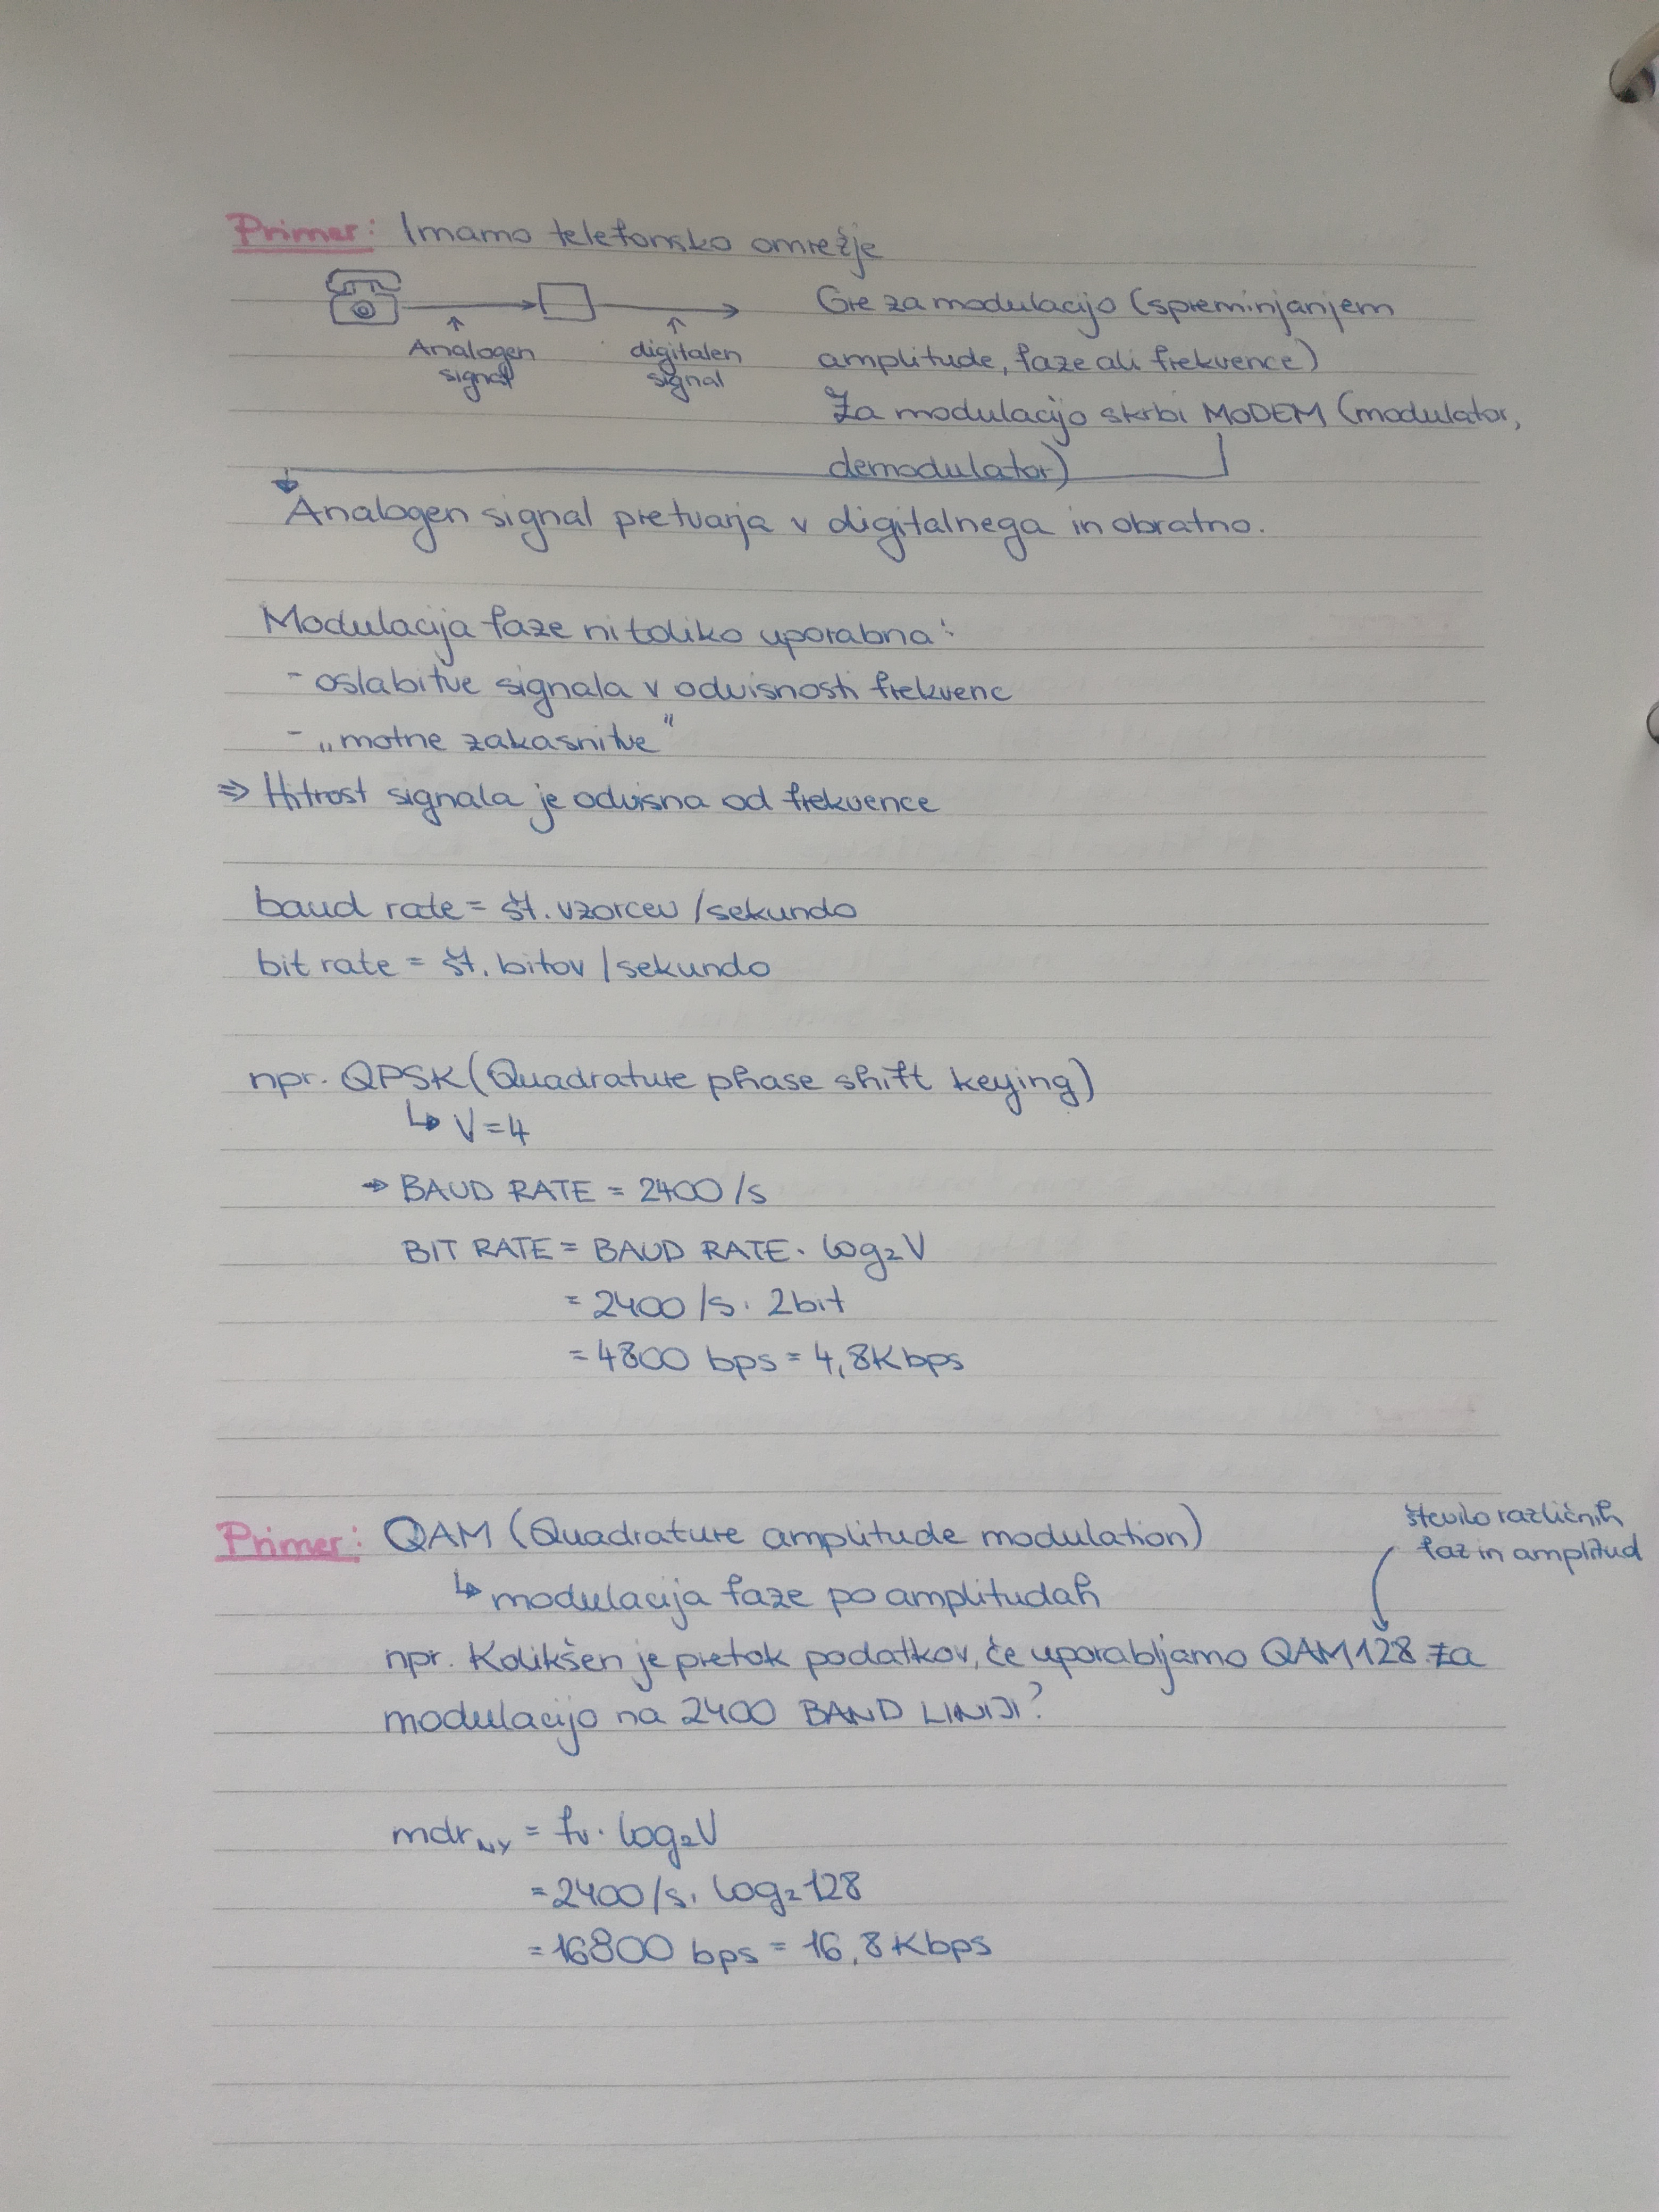 Primer: Imamo telefonsko omrežje
Analogen signal
digitalen signal
Gre za modulacijo (spreminjanjem
amplitude, faze ali frekvence)
Za modulacijo skrbi MODEM (modulator,
demodulator)
Analogen signal pretvarja v digitalnega in obratno.
Modulacija faze ni toliko uporabna:
- oslabitve signala v odvisnosti frekvenc
- „motne zakasnitve"
⇒ Hitrost signala je odvisna od frekvence
baud rate = št. vzorcev /sekundo
bit rate = št. bitov /sekundo
npr. QPSK (Quadrature phase shift keying)
↳ V=4
→ BAUD RATE = 2400 /s
BIT RATE = BAUD RATE · log₂V
= 2400 /s · 2bit
= 4800 bps = 4,8Kbps
število različnih
faz in amplitud
Primer: QAM (Quadrature amplitude modulation)
↳ modulacija faze po amplitudah
npr. Kolikšen je pretok podatkov, če uporabljamo QAM128 za
modulacijo na 2400 BAND LINIJI?
mdr_NY = fv · log₂V
= 2400/s · log₂128
= 16800 bps = 16,8Kbps